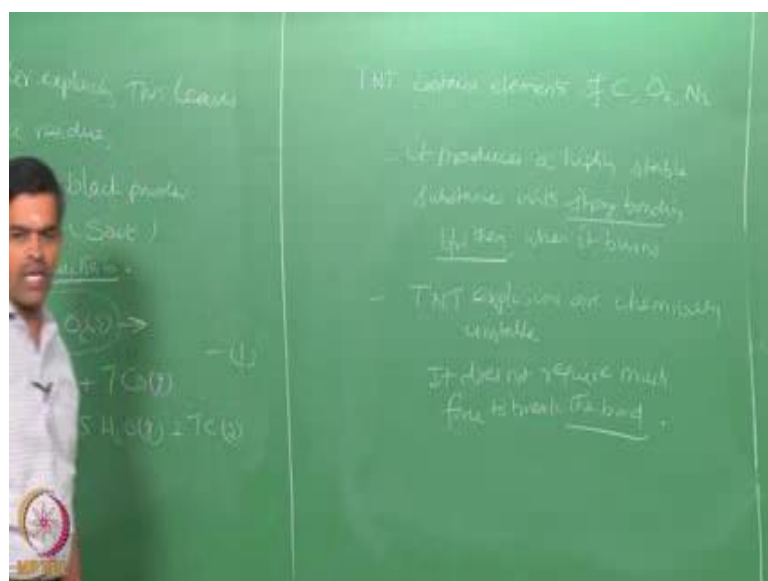 after exploding, TNT leaves
residue,
black powder
Soot)
→
+ 7CO(g)
5 H2O(g) + 7C(s)
TNT contain elements of C, O2, N2
- it produces a highly stable
substances with strong bonding
b/w them when it burns
- TNT explosion are chemically
unstable
It does not require much
force to break the bond.
NPTEL